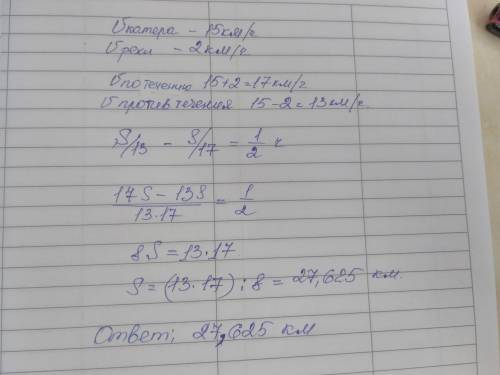 Vкатера – 15км/ч
Vреки – 2км/ч
Vпо течению 15+2=17км/г
Vпротив течения 15-2=13км/г
S/13 – S/17 = 1/2 ч
(17S – 13S)/(13·17) = 1/2
8S = 13·17
S = (13·17) : 8 = 27,625 км.
Ответ; 27,625 км